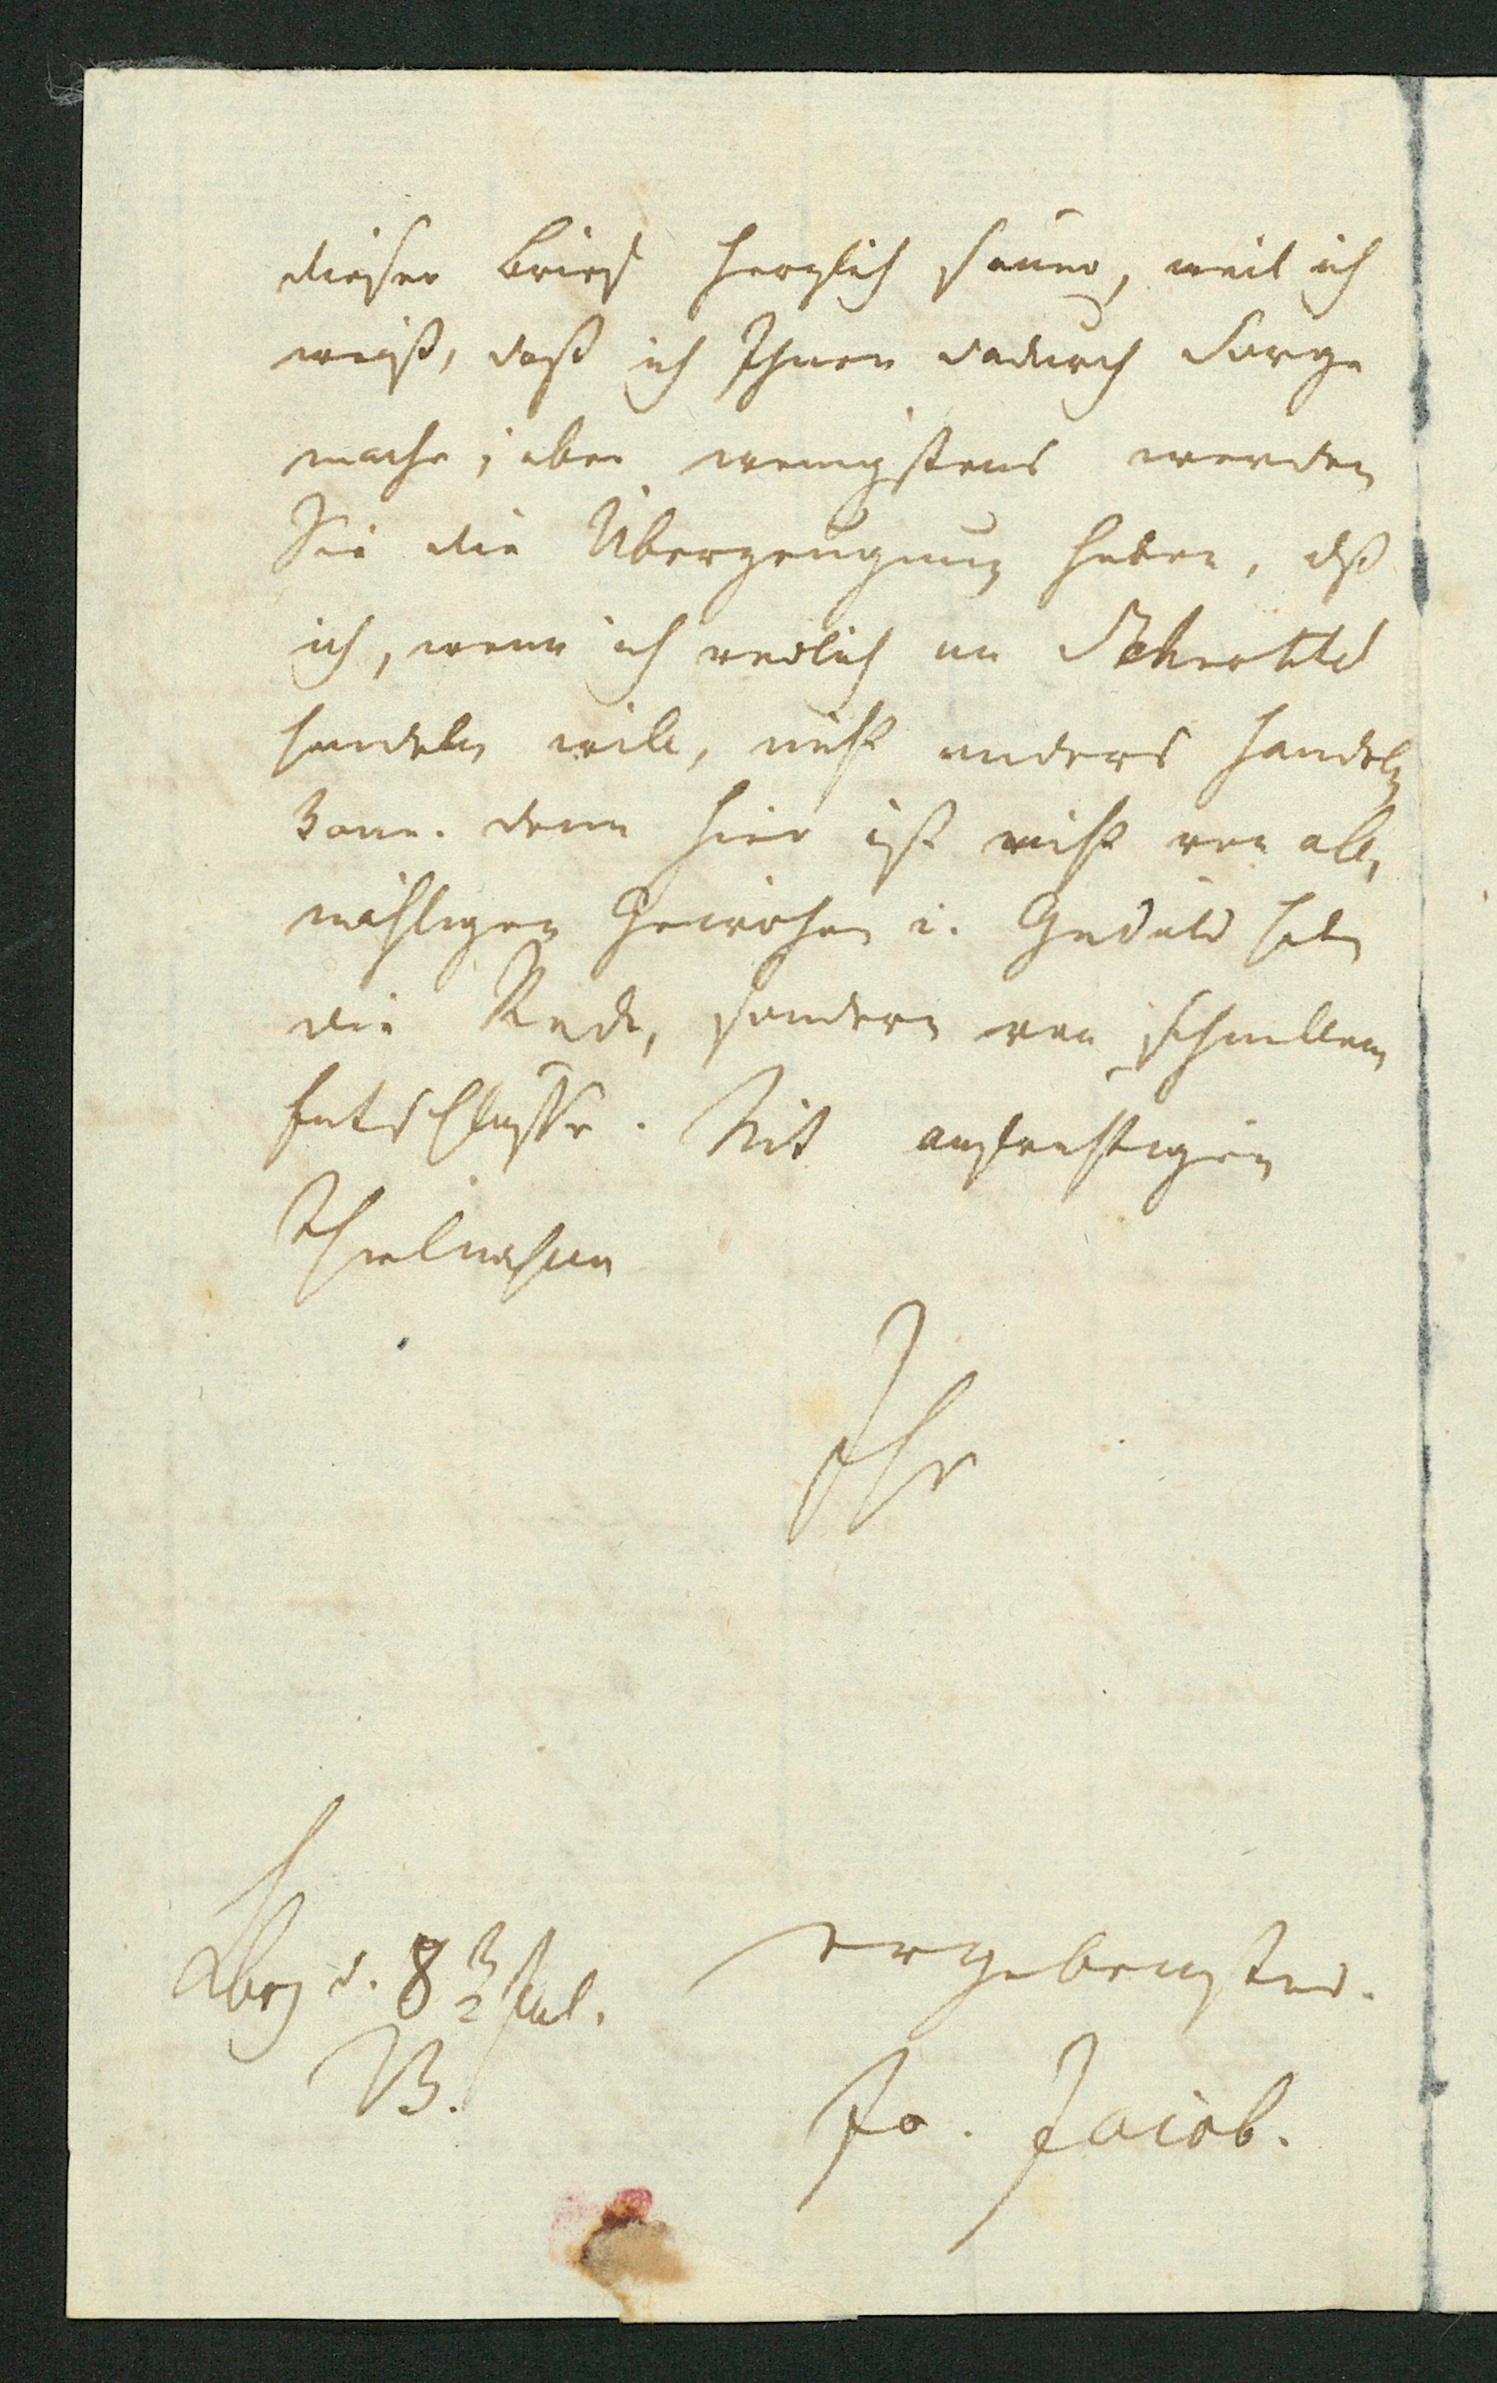 dieser Brief herzlich sauer, weil ich
weiß, daß ich Ihnen dadurch Sorge
mache; aber wenigstens werden
Sie die Überzeugung haben, dß
ich, wenn ich redlich an
handeln will, nicht anders handeln
kann. denn hier ist nicht von all,
mähligen Gewöhnen u. Geduld haben
die Rede, sondern von schnellem
Entschlusse. Mit aufrichtigem
Theilnahme
Ihr
d. 8
ergebenster.
Jacob.